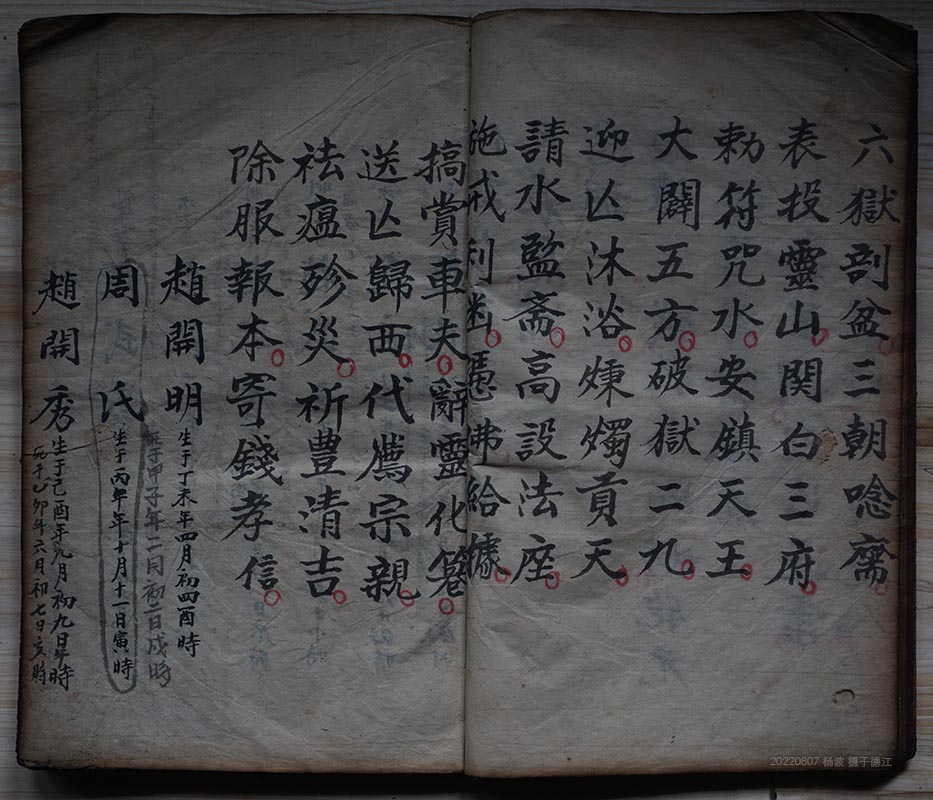 六獄剖盆三朝唸齋
表投靈山関白三府
勅符咒水安鎮天王
大闢五方破獄二九
迎亾沐浴煉燭貢天
請水監斋高設法座
施戒利幽憑牌給據
搞賞車夫辭靈化笼
送亾歸西代薦宗親
祛瘟殄災祈豊清吉
除服報本寄錢孝信
趙開明 生于丁未年四月初四酉時
死于甲子年二月初二日戍時
周氏 生于丙午年十月十一日寅時
趙開秀 生于己酉年九月初九日午時
死于乙卯年六月初七日亥時
20220807 杨波 摄于德江